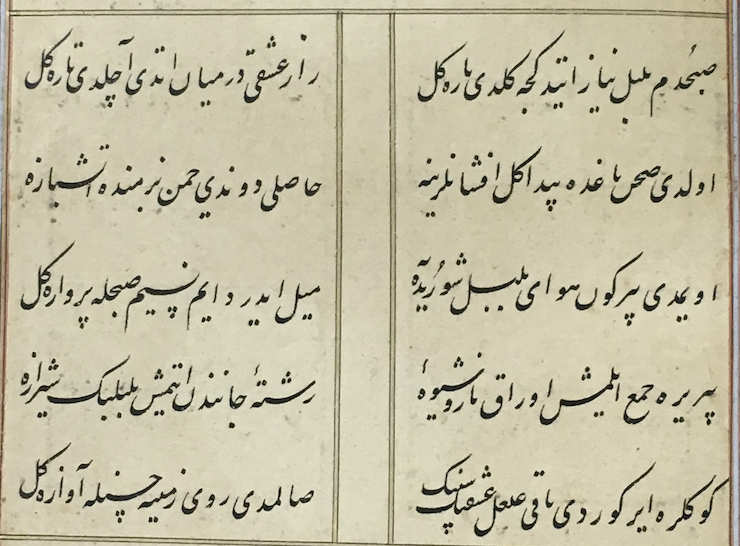 صبحدم بلبل نیاز ایتدکجه کلدی نازه کل راز عشقی در میان اتدی آچلدی تازه کل
اولدی صحن باغده پیدا کل افشانلرینه حاصلی دوندی چمن بزمنده اتشبازه
اویمدی بر کون هوای بلبل شوریده میل ایدر دایم نسیم صبحله پروازه کل
بریره جمع ایلمش اوراق ناز و شیوهٔ رشتهٔ جانندن ایتمش بلبلک شیرازه
کوکلره ایرکوردی باقی غلغل عشقک سنک صالمدی روی زمینه حسنله آوازه کل